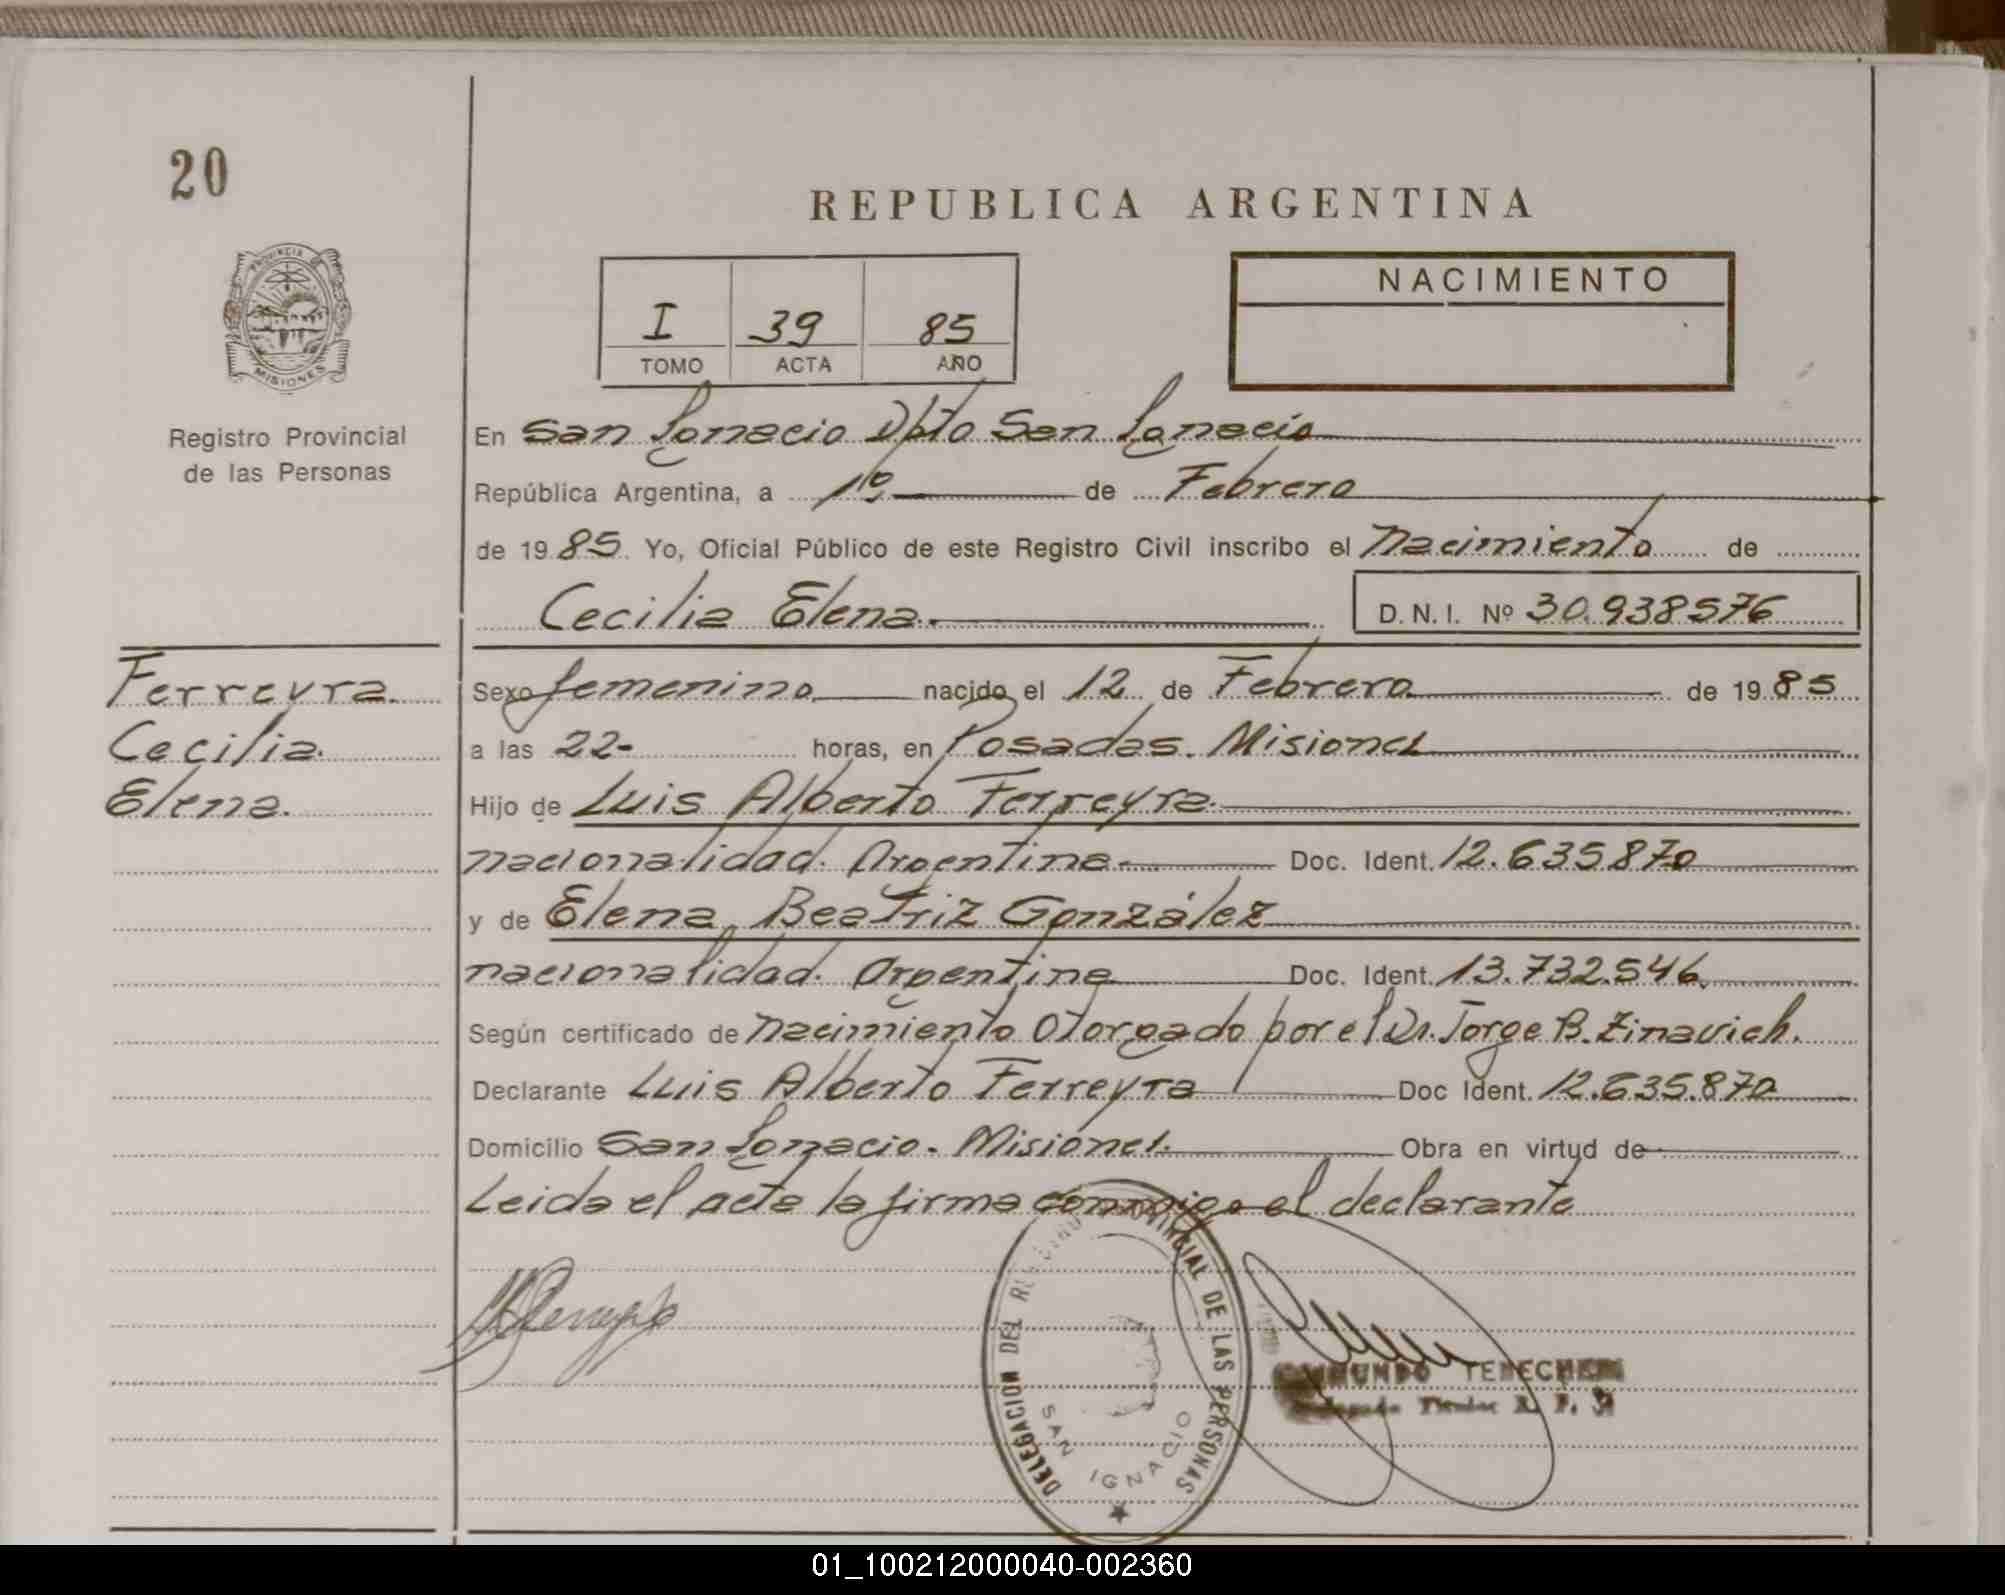 20
REPUBLICA ARGENTINA
PROVINCIA DE
MISIONES
Registro Provincial
de las Personas
I 39 85
TOMO ACTA AÑO
NACIMIENTO
En San Ignacio Dpto San Ignacio
República Argentina, a 1º de Febrero
de 1985. Yo, Oficial Público de este Registro Civil inscribo el Nacimiento de
Cecilia Elena. D.N.I. Nº 30.938576
Ferreyra.
Cecilia.
Elena.
Sexo femenino nacido el 12 de Febrero de 1985
a las 22- horas, en Posadas. Misiones
Hijo de Luis Alberto Ferreyra.
nacionalidad. Argentina. Doc. Ident. 12.635.870
y de Elena Beatriz González
nacionalidad. Argentina Doc. Ident. 13.732.546
Según certificado de Nacimiento Otorgado por el Dr. Jorge B. Zinavich.
Declarante Luis Alberto Ferreyra Doc Ident. 12.635.870
Domicilio San Ignacio. Misiones. Obra en virtud de
Leida el acta la firma conmigo el declarante
DELEGACION DEL REGISTRO PROVINCIAL DE LAS PERSONAS
SAN IGNACIO
Titular R. P.
01_100212000040-002360